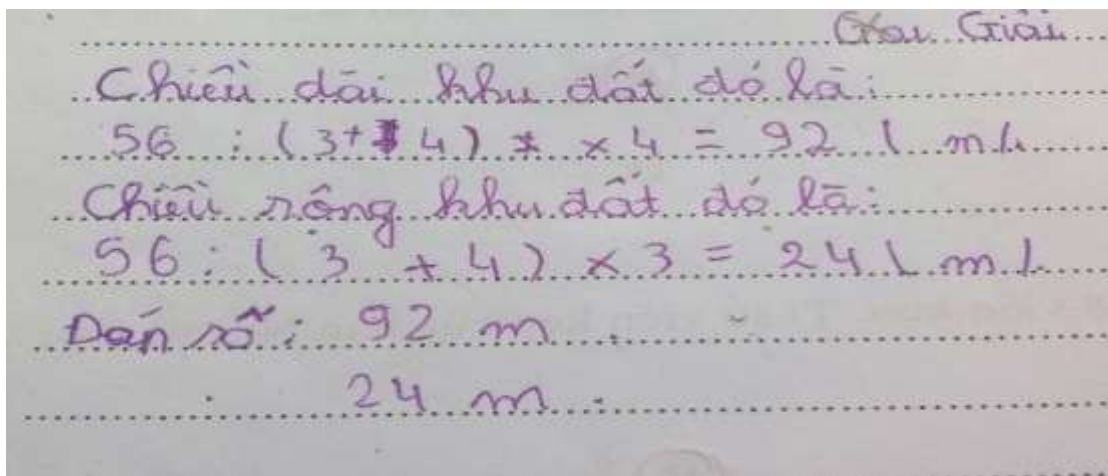 Giải
Chiều dài khu đất đó là:
56 : (3 + 4) × 4 = 92 ( m ).
Chiều rộng khu đất đó là:
56 : ( 3 + 4 ) × 3 = 24 ( m ).
Dáp số : 92 m
: 24 m .